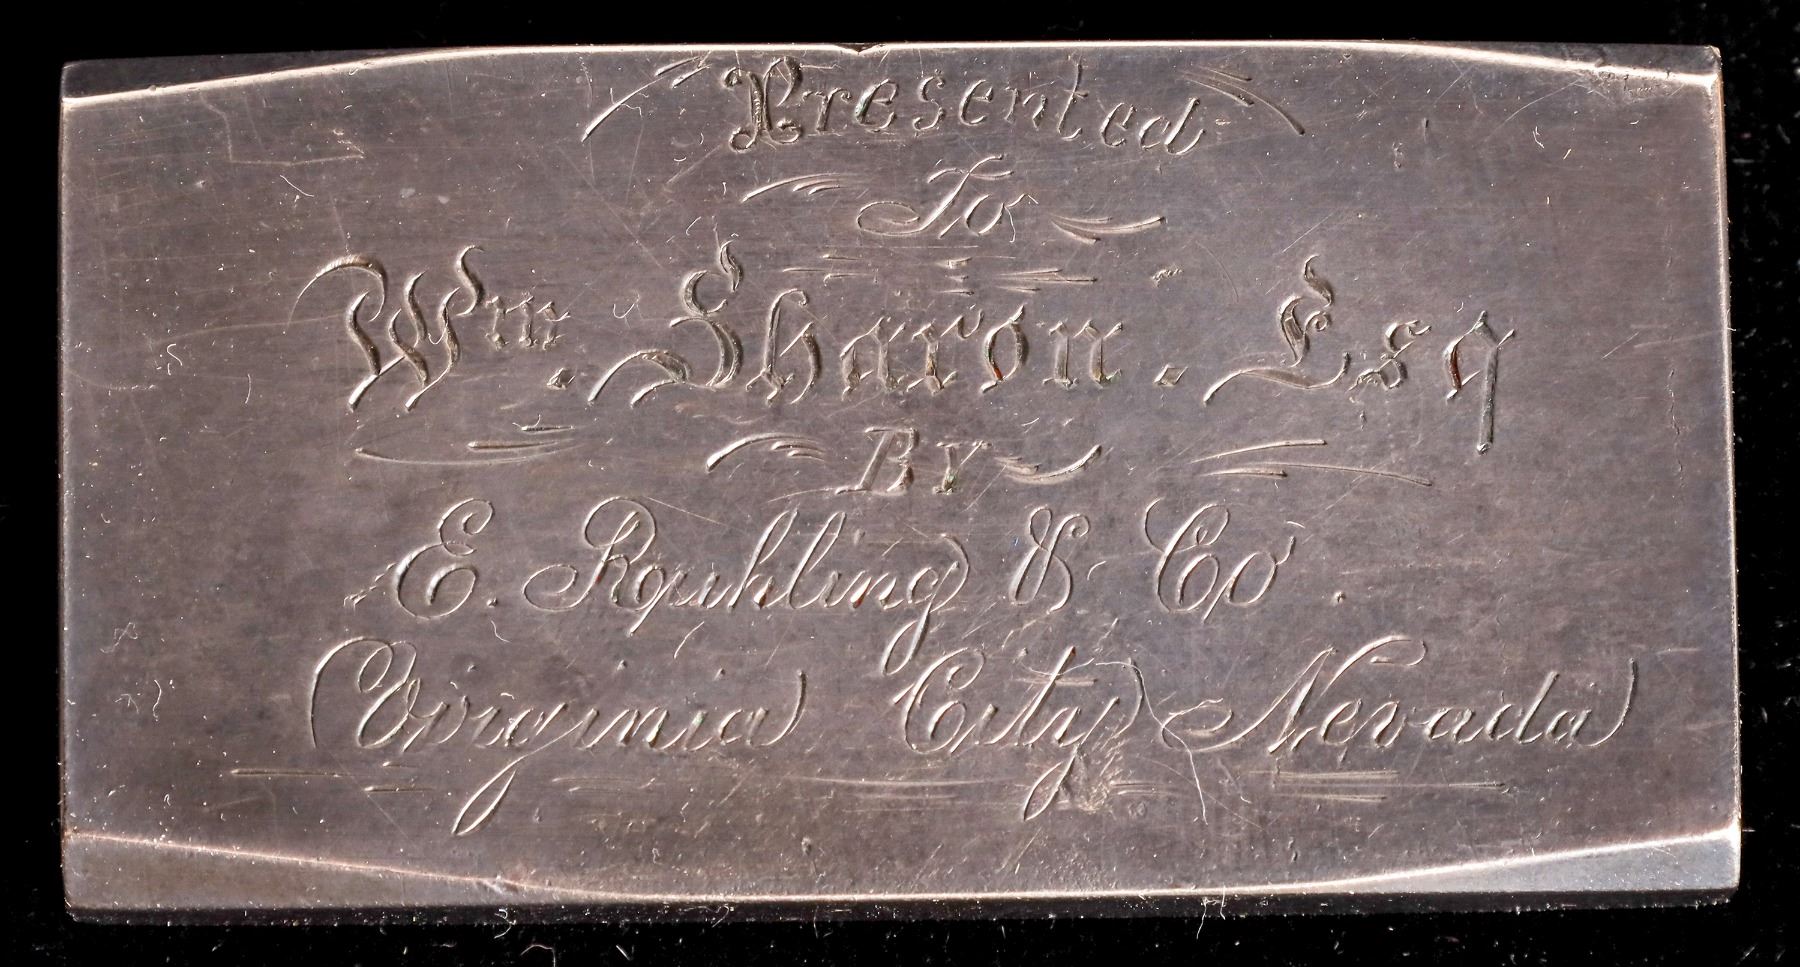 Presented
To
Wm. Sharon. Esq
BY
E. Rouhling & Co.
Virginia City Nevada